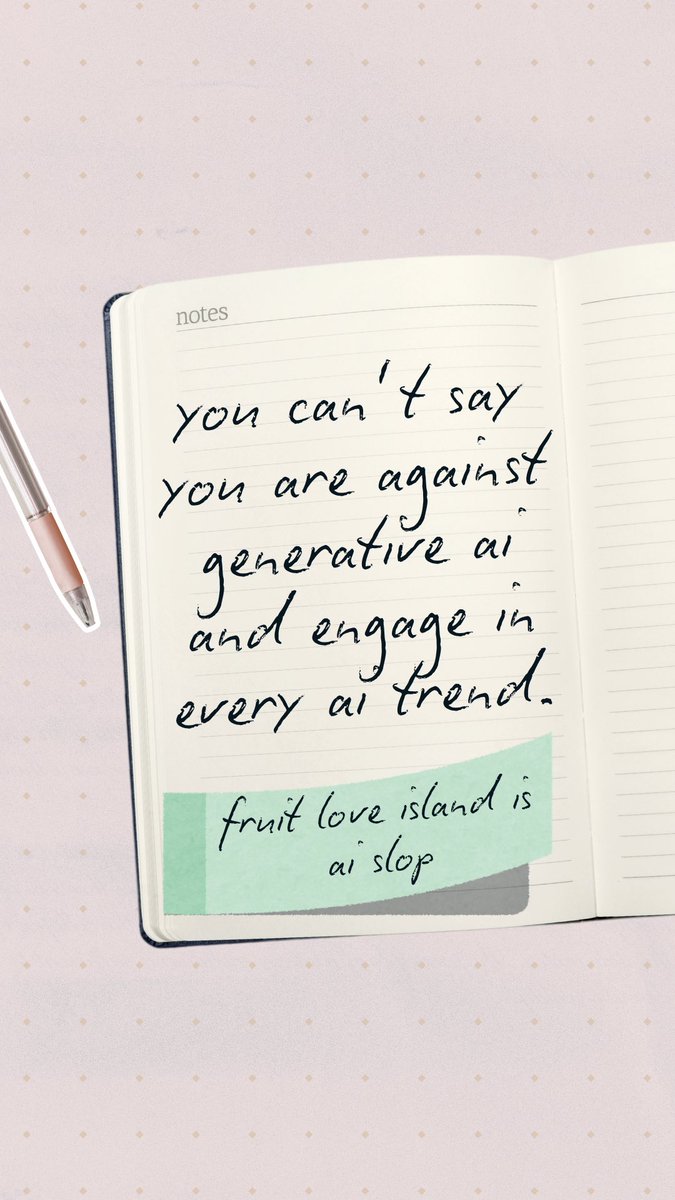 notes
you can't say
you are against
generative ai
and engage in
every ai trend.
fruit love island is
ai slop